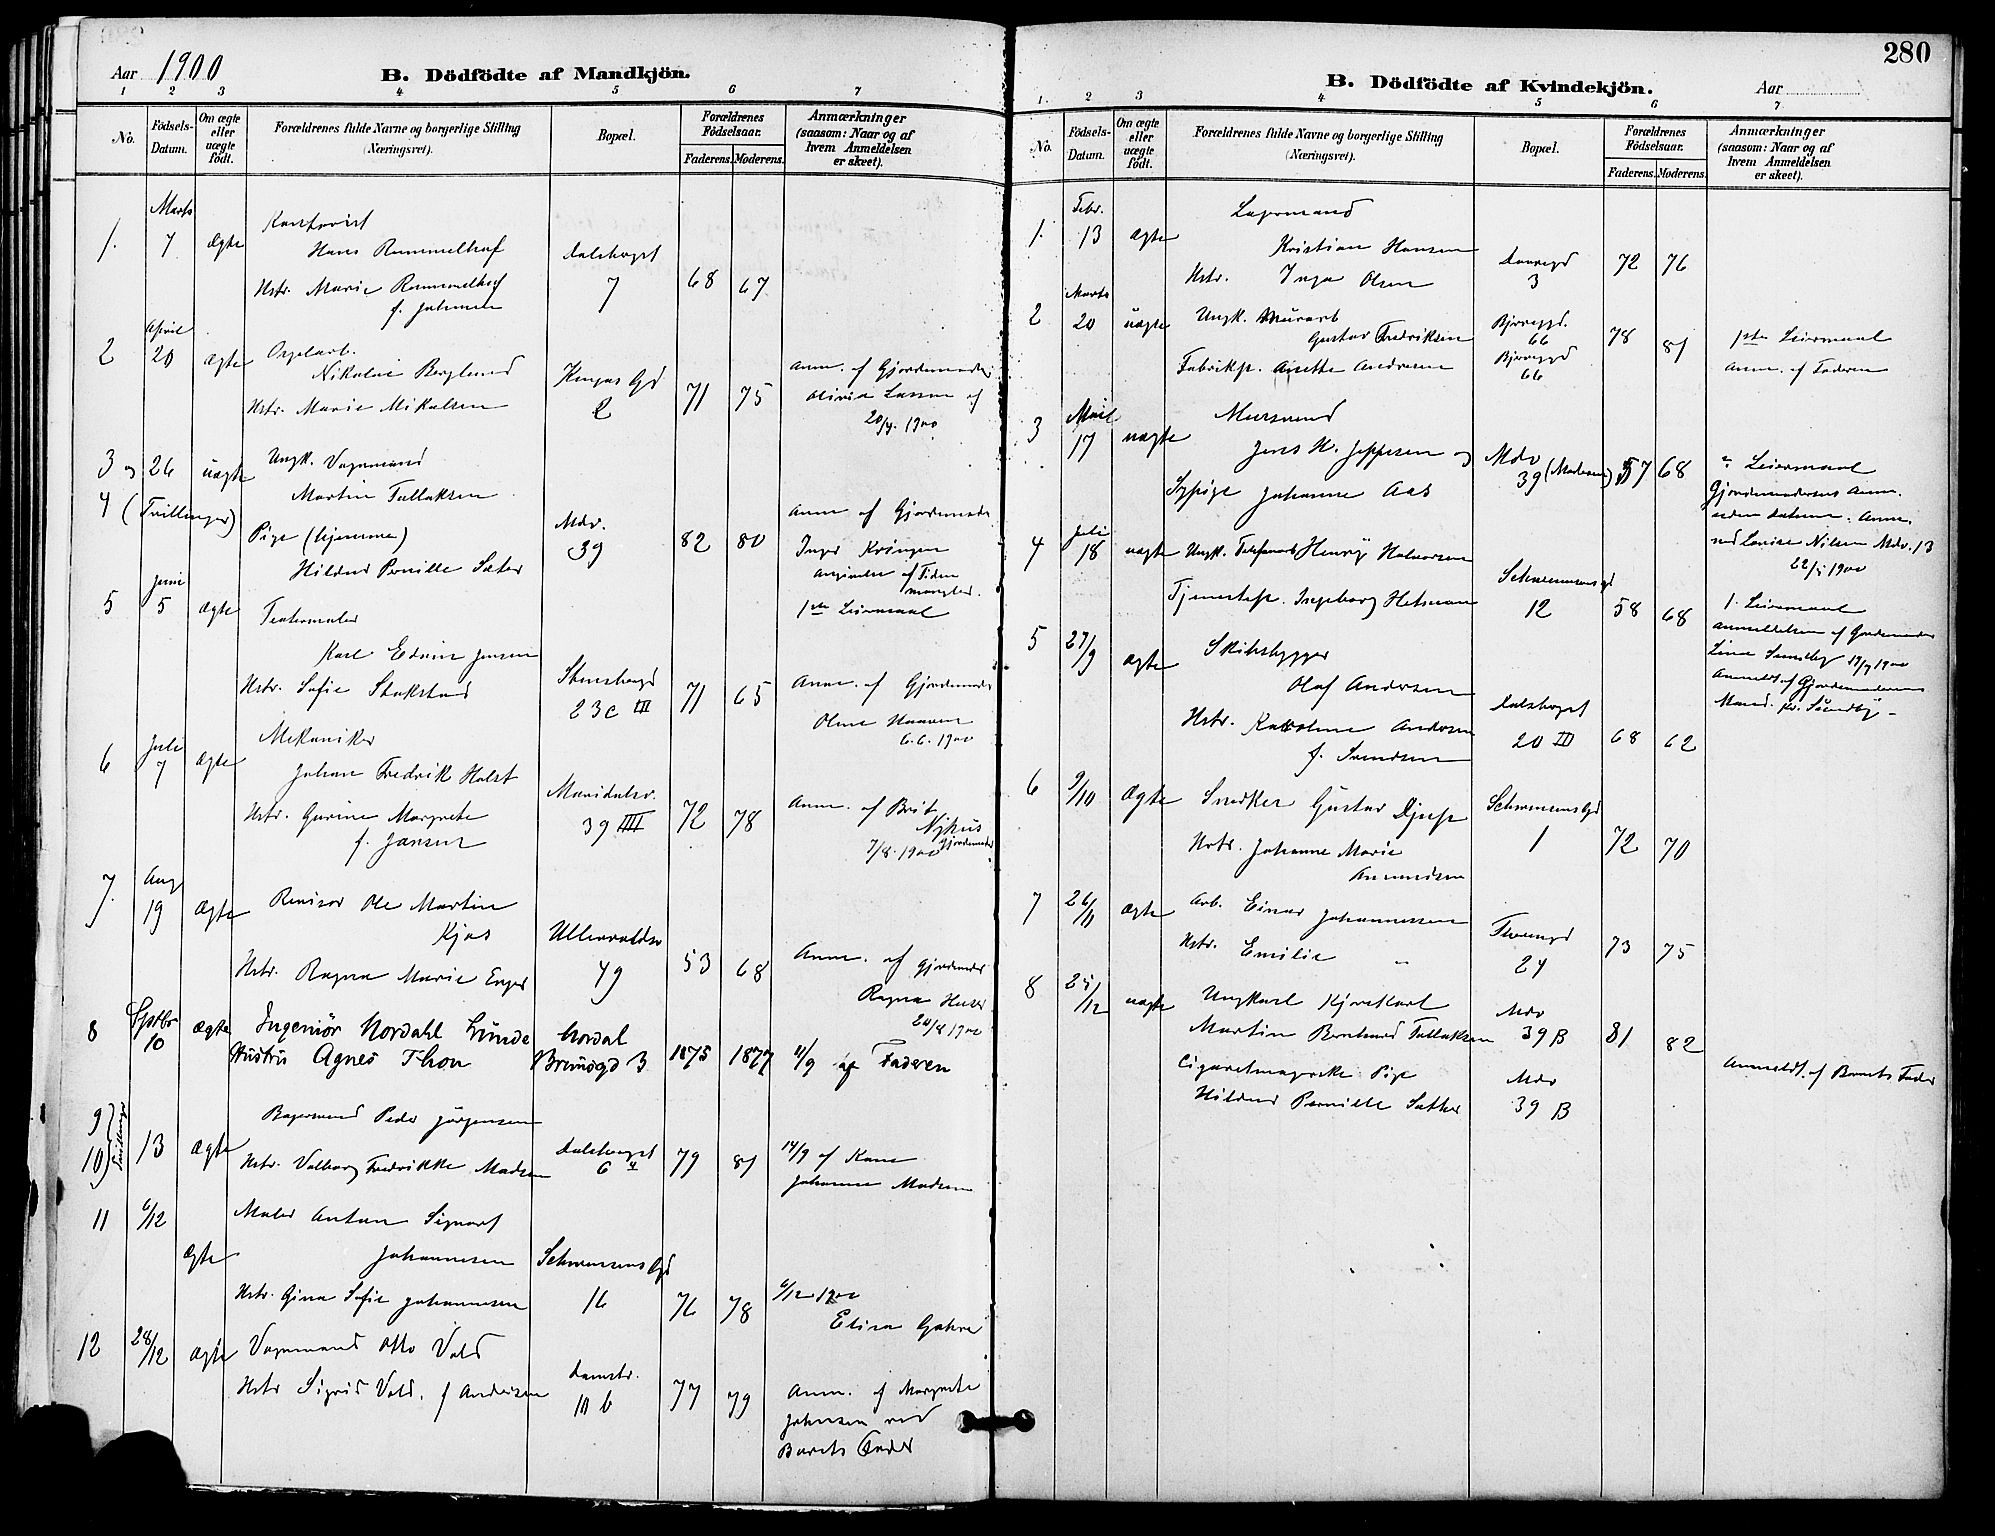 Aar 1900
B. Dödfödte af Mandkjön.
1 2 3 4 5 6 7
No.
Födsels-Datum.
Om ægte eller uægte født.
Forældrenes fulde Navne og borgerlige Stilling (Næringsvei).
Bopæl.
Forældrenes Födselsaar.
Faderens. Moderens.
Anmærkninger (saasom: Naar og af hvem Anmeldelsen er skeet).
1. Marts 7 ægte
Hans Rummelhof
Hstr. Marie Rummelhof
f. Johnsen
Dalsberget
7
68 67
2 April 20 ægte
Nikolai Berglund
Hstr. Marie Mikalsen
Kingos Gd
2
71 75
Anm. af Gjordemoder
Olivia Larsen
20/4. 1900
3 og 26 uægte
4 (Tvillinger)
Ungk. Vognmand
Martin Tallaksen
Pige (hjemme)
Hildur Pernille Sæter
Mdv.
39
82 80
Anm. af Gjordemoder
Inger
Angivelse af Tiden
mangler.
1ste Leiermaal
5 Juni 5 ægte
Teatermaler
Karl Edvin Jensen
Hstr. Sofie Stokstad
Stensberggd
23c III
71 65
Anm. af Gjordemoder
6.6.1900
6 Juli 7 ægte
Mekaniker
Johan Fredrik Holst
Hstr. Gurine Margrete
f. Jansen
Maridalsv.
39 IIII
72 78
Anm. af Brit
Nyhus
Gjordemoder
7/8. 1900
7. Aug 19 ægte
Revisor Ole Martin
Kjos
Hstr. Ragna Marie Enger
Ullevoldsv
79
53 68
Anm. af Gjordemoder
Ragna
20/8 1900
8 Septbr 10 ægte
Ingeniör Nordahl Lunde
Hustru Agnes Thon
Nordal
Brunsgd 3
1875 1877
11/9 af Faderen
9
10 Tvillinger 13 ægte
Bagersvend Peder Jørgensen
Hstr. Valborg Fredrikke Madsen
Dalsberget
6
79 81
14/9 af Kone
Johanne Madsen
11 6/12 ægte
Maler Anton Signarf
Johannesen
Hstr. Gina Sofie Johannesen
Schwensens Gd
16
76 78
6/12 1900
Elisa
12 28/12 ægte
Vognmand Otto Vold
Hstr Sigrid Vold. f Andersen
Damstr.
10 b
77 79
Anm. af Margrete
Johnsen ved
Barnets Fader
280
B. Dödfödte af Kvindekjön.
Aar
1. 2 3 4 5 6 7
No.
Födsels-Datum.
Om ægte eller uægte födt.
Forældrenes fulde Navne og borgerlige Stilling (Næringsvei).
Bopæl.
Forældrenes Födselsaar.
Faderens. Moderens.
Anmærkninger (saasom: Naar og af hvem Anmeldelsen er skeet).
1. Febr. 13 ægte
Lagermand
Kristian Hansen
Hstr. Inga Olsen
3
72 76
2 Marts 20 uægte
Ungk. Murarb
Gustav Fredriksen
Fabrikp. Anette Andresen
Bjerregd.
66
Bjerregd
66
78 81
1ste Leiermaal
Anm. af Faderen
3 17 uægte
Mursvend
Jens H. Jeppesen og
Sypige Johanne Aas
Mdv
39 (Moderen)
57 68
2. Leiermaal
Gjordemoderens Anm.
uden datum. Anm.
ved Lovise Nilsen Mdv. 13
1900
4 Juli 18 uægte
Ungk. Henry Halvorsen
Tjenestep. Ingeborg
Schwensensgd
12
58 68
1. Leiermaal
Anmeldelsen af Gjordemoder
Lina Sundby 19/7 1900
5 27/9 ægte
Skibsbygger
Olaf Andersen
Hstr. Karoline Andersen
f. Svendsen
Dalsberget
20 III
68 62
Anmeldt af Gjordemoderens
Mand. Kr. Sundby -
6 9/10 ægte
Snedker Gustav Djup
Hstr. Johanne Marie
Amundsen
Schwensens Gd
1
72 70
7 26/11 ægte
Arb. Einar Johannessen
Hstr. Emilie "
24
73 75
8 25/12 uægte
Ungkarl Kjørekarl
Martin Bernhard Tallaksen
Cigaretmagerske Pige
Hildur Pernille Sæther
Mdv
39 B
Mdv
39 B
81 82
Anmeldt. af Barnets Fader